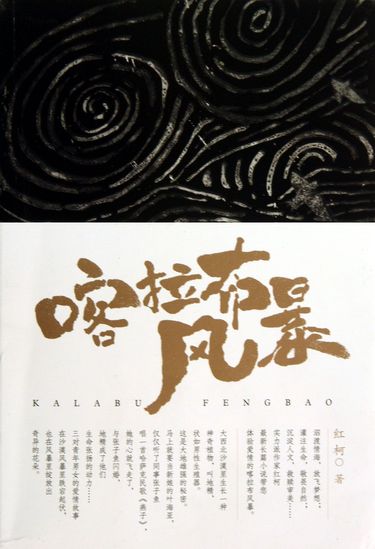 喀拉布
风暴
KALABU FENGBAO
红柯◎著
泅渡情海,放飞梦想,
灌注生命,敬畏自然,
沉淀人文,救赎审美……
实力派作家红柯
最新长篇小说带您
体验爱情的喀拉布风暴。
大西北沙漠里生长一种
神奇植物,叫地精,
状如男性生殖器。
这是大地雄强的秘密。
马上就要当新娘的叶海亚,
仅仅听了同事张子鱼
唱一首哈萨克民歌《燕子》,
她的心就飞走了,
与张子鱼闪婚,
地精成了他们
生命张扬的动力……
三对青年男女的爱情故事
在沙漠风暴里跌宕起伏,
也在风暴里绽放出
奇异的花朵。